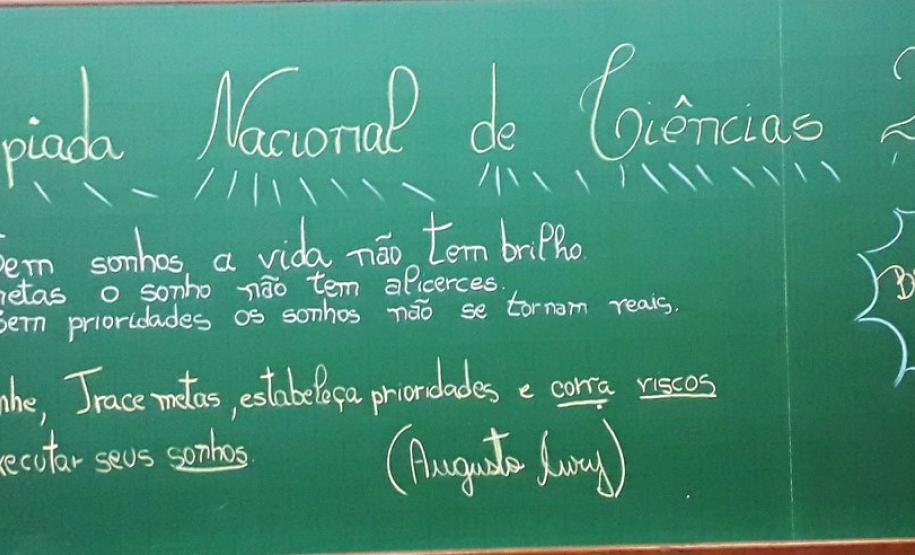 piada Nacional de Ciências 2
Sem sonhos a vida não tem brilho.
metas o sonho não tem alicerces.
Sem prioridades os sonhos não se tornam reais.
nhe, Trace metas, estabeleça prioridades e corra riscos
xecutar seus sonhos.
(Augusto Cury)
B